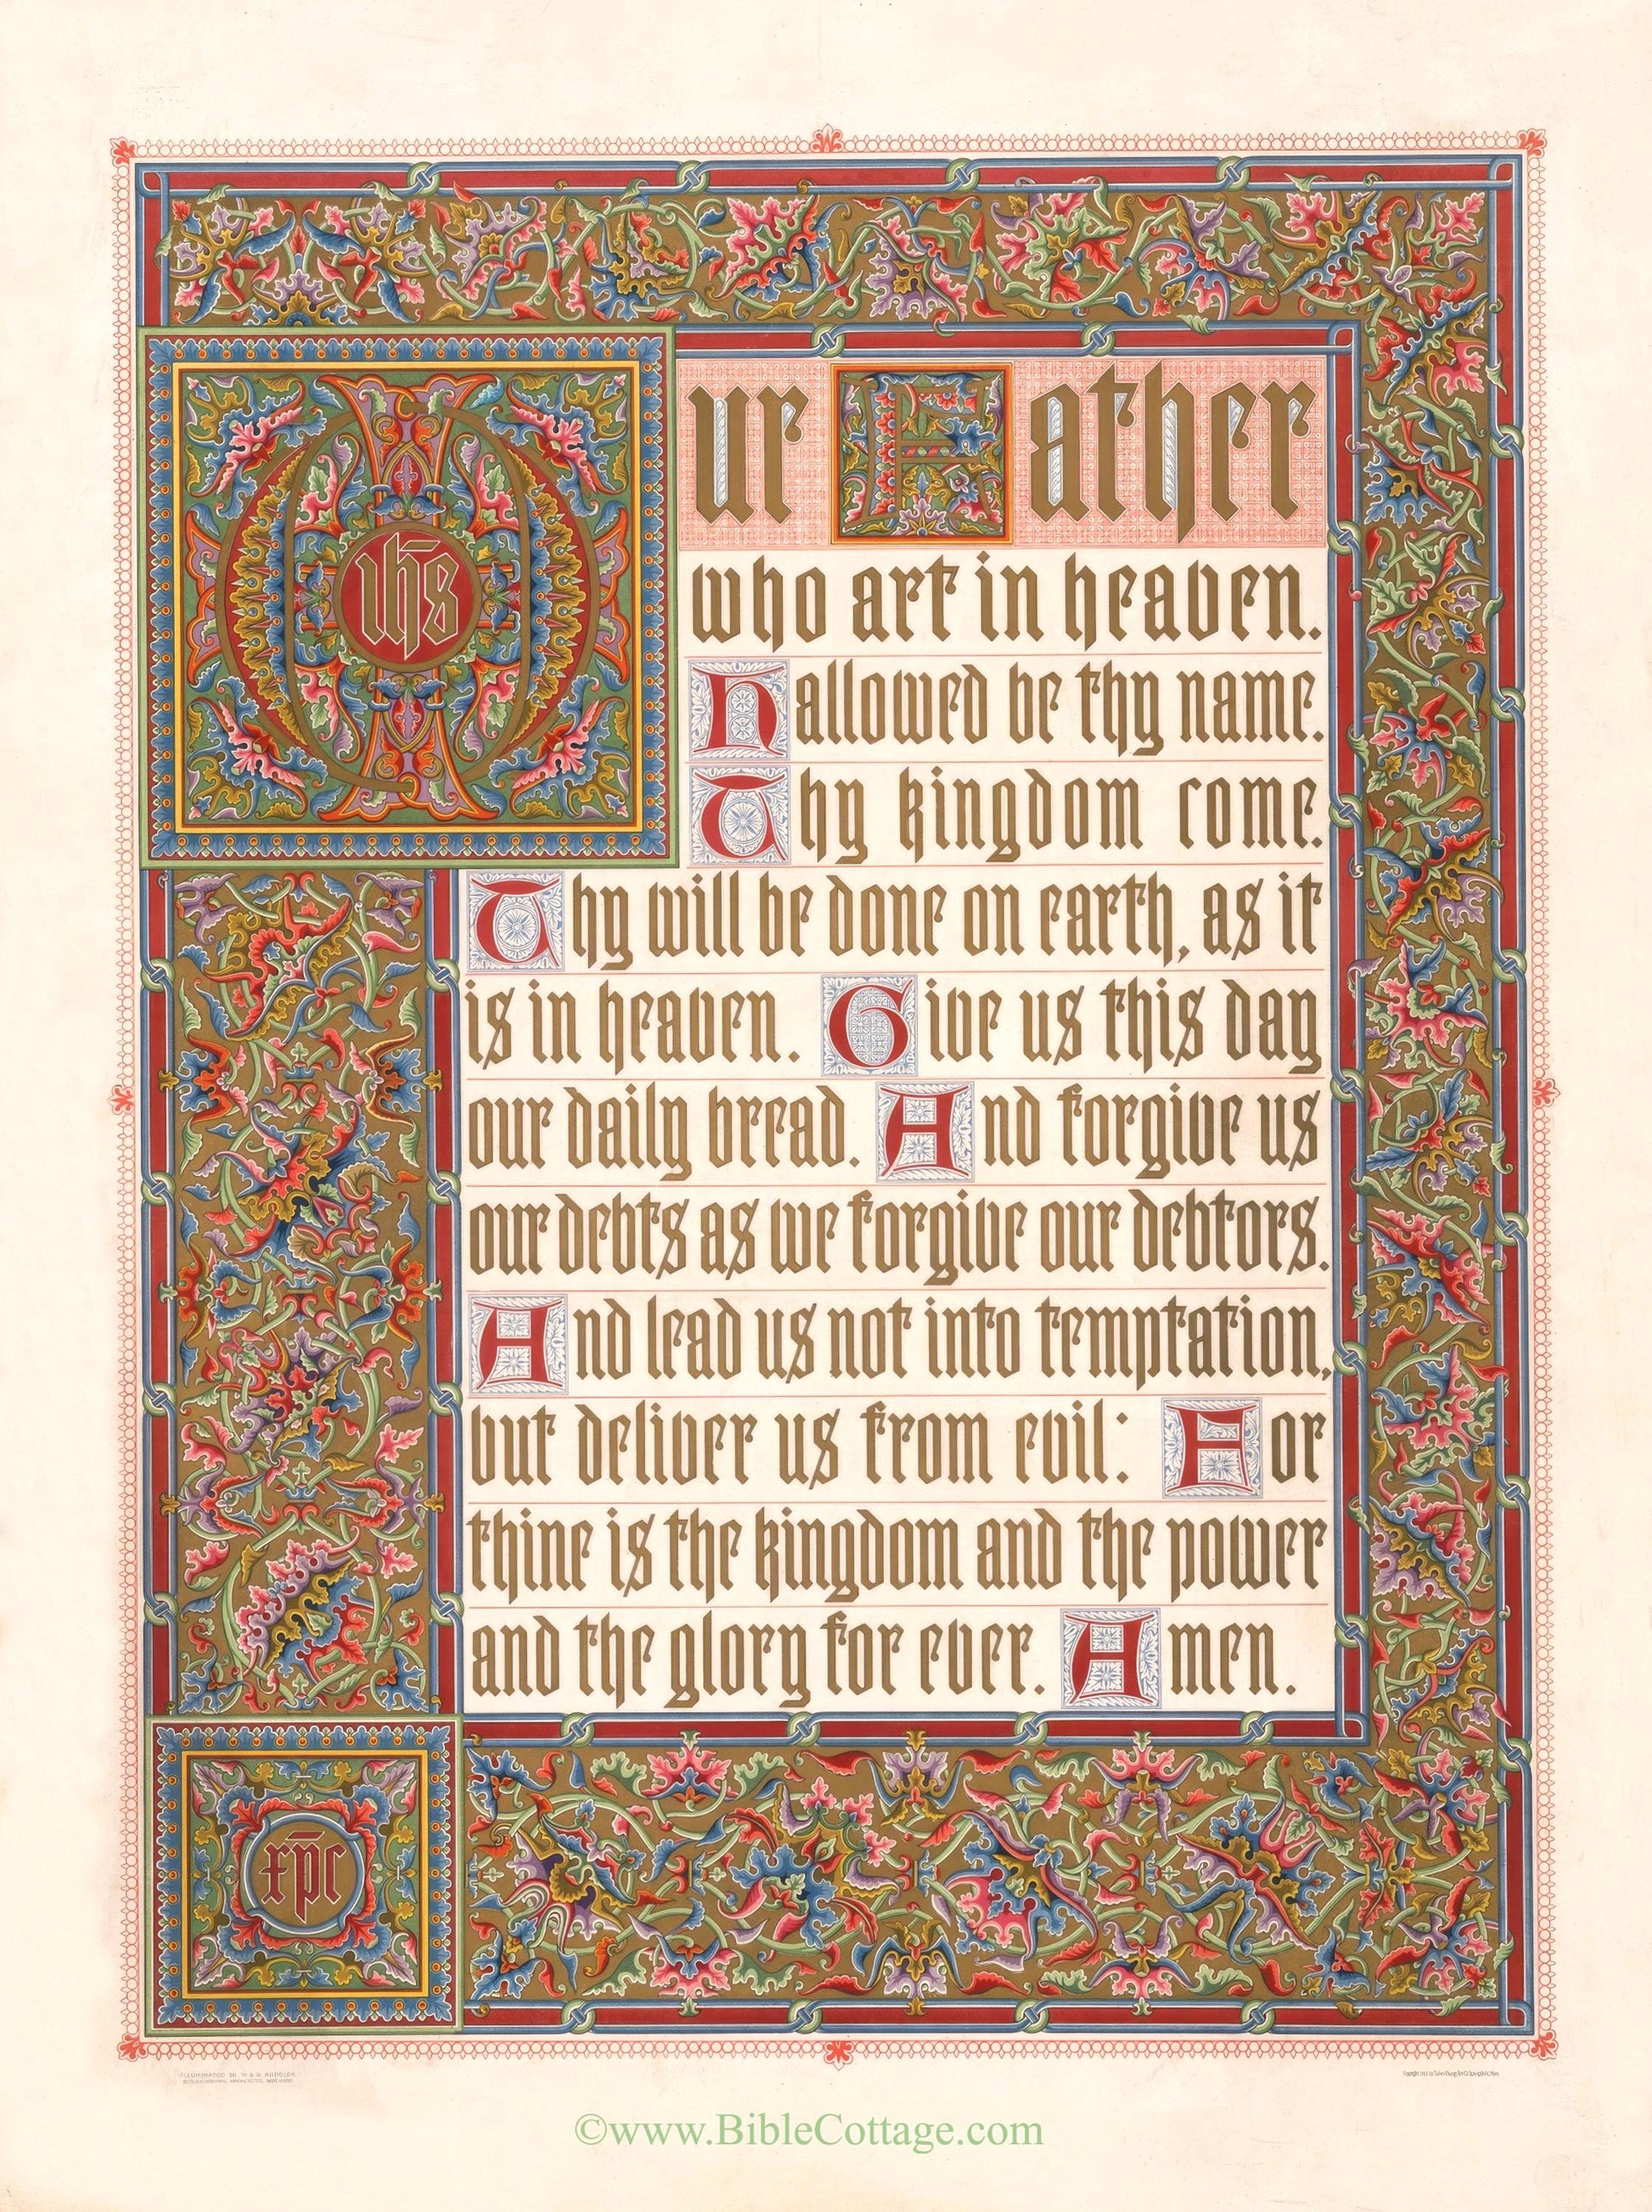 Our Father
ihs
who art in heaven.
Hallowed be thy name.
Thy kingdom come.
Thy will be done on earth, as it
is in heaven. Give us this day
our daily bread. And forgive us
our debts as we forgive our debtors.
And lead us not into temptation,
but deliver us from evil: For
thine is the kingdom and the power
and the glory for ever. Amen.
xpc
ILLUMINATED BY W & G AUDSLEY
©www.BibleCottage.com